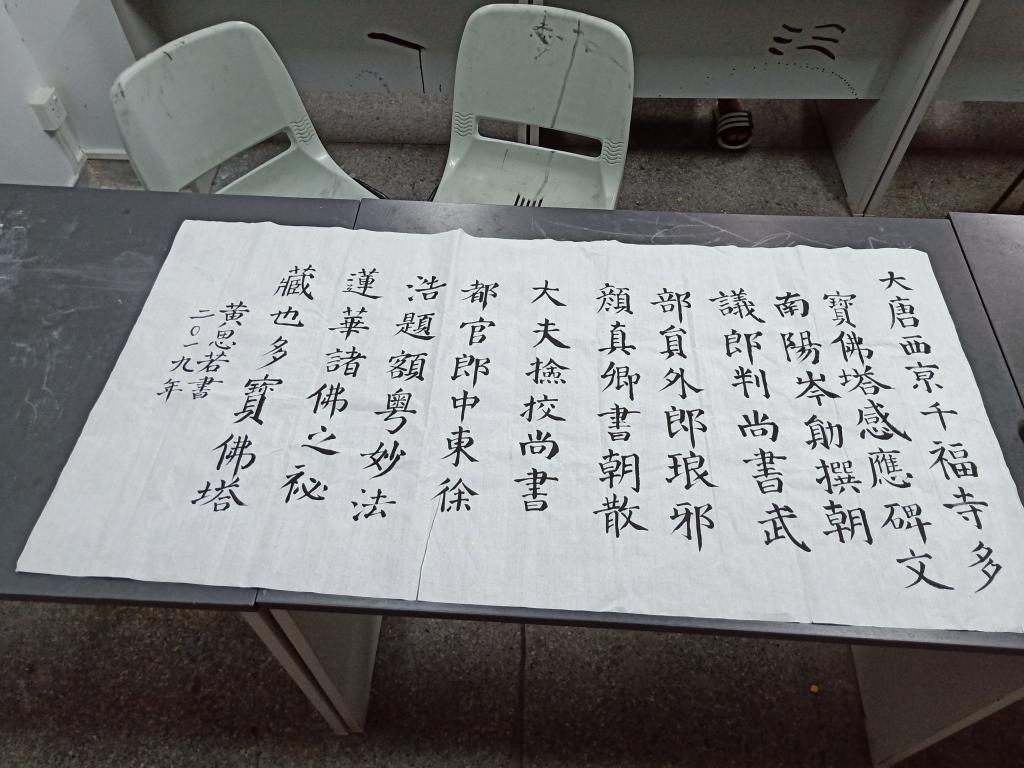 大唐西京千福寺多
寶佛塔感應碑文
南陽岑勛撰朝
議郎判尚書武
部貟外郎琅邪
顏真卿書朝散
大夫撿挍尚書
都官郎中東徐
浩題額粤妙法
蓮華諸佛之祕
藏也多寶佛塔
黄思若書
二0一九年